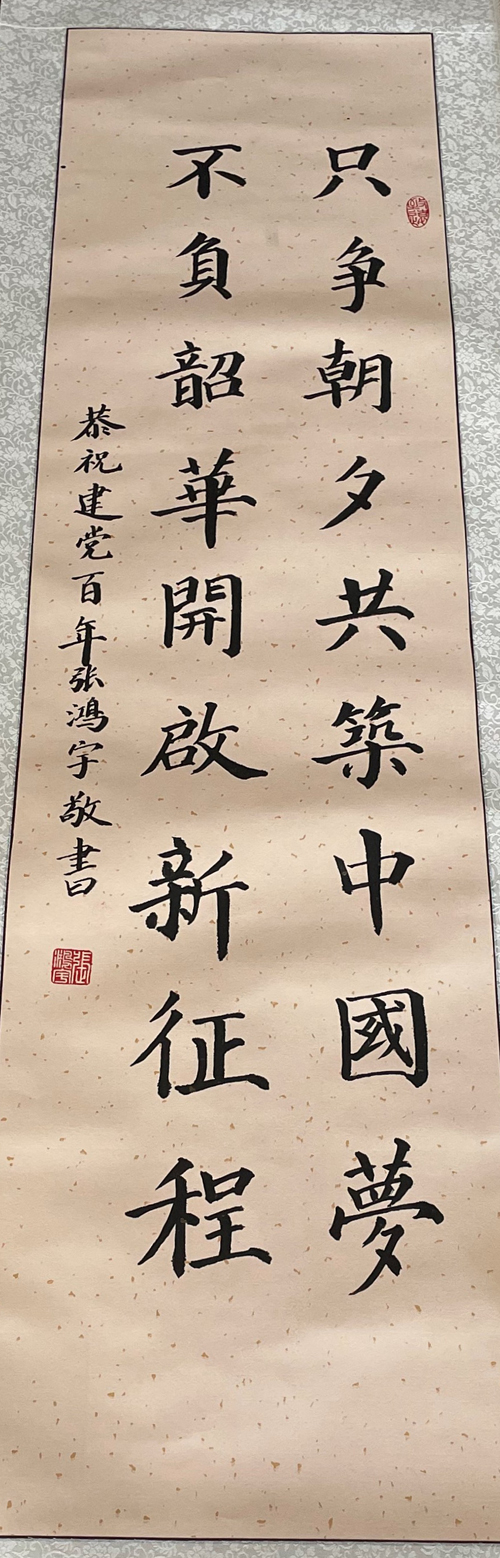 只争朝夕共築中國夢
不負韶華開啟新征程
恭祝建党百年张鴻宇敬書
張鴻宇